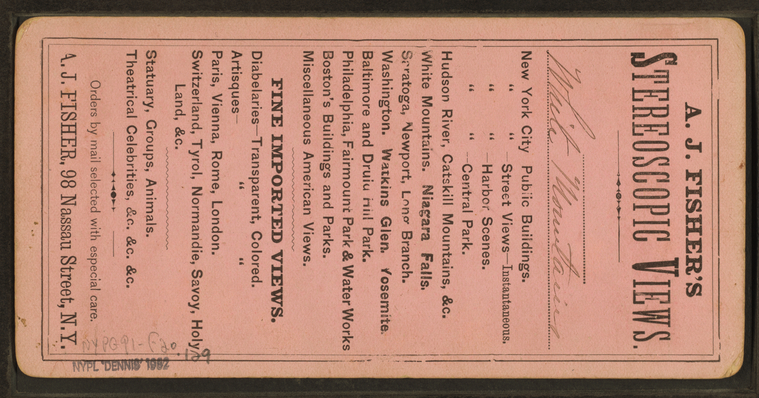 A. J. FISHER'S
STEREOSCOPIC VIEWS.
White Mountains
New York City Public Buildings.
" " Street Views—Instantaneous.
" " Harbor Scenes.
" " Central Park.
Hudson River, Catskill Mountains, &c.
White Mountains. Niagara Falls.
Saratoga, Newport, Long Branch.
Washington. Watkins Glen. Yosemite.
Baltimore and Druid Hill Park.
Philadelphia, Fairmount Park & Water Works
Boston's Buildings and Parks.
Miscellaneous American Views.
FINE IMPORTED VIEWS.
Diabelaries—Transparent, Colored.
Artisques— " "
Paris, Vienna, Rome, London.
Switzerland, Tyrol, Normandie, Savoy, Holy
Land, &c.
Statuary, Groups, Animals.
Theatrical Celebrities, &c. &c. &c.
Orders by mail selected with especial care.
A. J. FISHER, 98 Nassau Street, N.Y.
NYPL "DENNIS" 1982